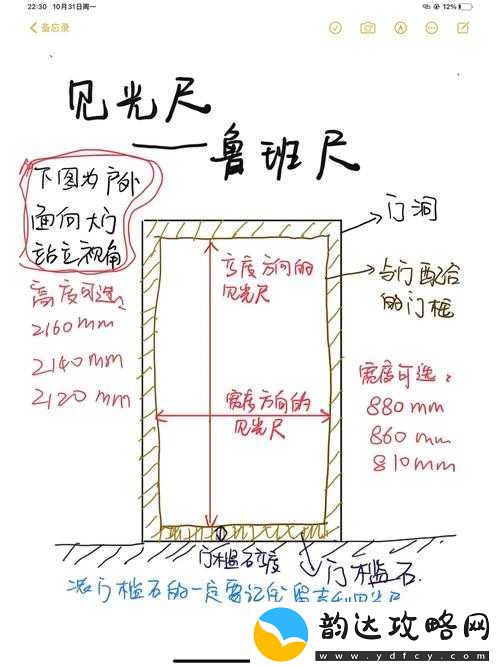 22:30 10月31日周一
12%
备忘录
见光尺
——鲁班尺
下图为户外
面向大门
站立视角
门洞
与门配合
的门框
高度方向的
见光尺
高度可选:
2160mm
2140mm
2120mm
宽度方向的
见光尺
宽度可选:
880mm
860mm
810mm
门槛石高度
门槛石.
门槛石的一定要记住留
韵达攻略网
www.ydfcy.com